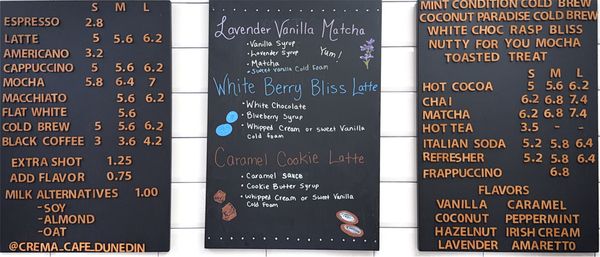 S M L
ESPRESSO 2.8
LATTE 5 5.6 6.2
AMERICANO 3.2
CAPPUCCINO 5 5.6 6.2
MOCHA 5.8 6.4 7
MACCHIATO 5.6 6.2
FLAT WHITE 5.6
COLD BREW 5 5.6 6.2
BLACK COFFEE 3 3.6 4.2
EXTRA SHOT 1.25
ADD FLAVOR 0.75
MILK ALTERNATIVES 1.00
-SOY
-ALMOND
-OAT
@CREMA_CAFE_DUNEDIN
Lavender Vanilla Matcha
• Vanilla Syrup
• Lavender Syrup
Yum!
• Matcha
• Sweet Vanilla Cold Foam
White Berry Bliss Latte
• White Chocolate
• Blueberry Syrup
• Whipped Cream or Sweet Vanilla
Cold foam
Caramel Cookie Latte
• Caramel Sauce
• Cookie Butter Syrup
• Whipped Cream or Sweet Vanilla
Cold Foam
MINT CONDITION COLD BREW
COCONUT PARADISE COLD BREW
WHITE CHOC RASP BLISS
NUTTY FOR YOU MOCHA
TOASTED TREAT
S M L
HOT COCOA 5 5.6 6.2
CHAI 6.2 6.8 7.4
MATCHA 6.2 6.8 7.4
HOT TEA 3.5 - -
ITALIAN SODA 5.2 5.8 6.4
REFRESHER 5.2 5.8 6.4
FRAPPUCCINO 6.8
FLAVORS
VANILLA CARAMEL
COCONUT PEPPERMINT
HAZELNUT IRISH CREAM
LAVENDER AMARETTO